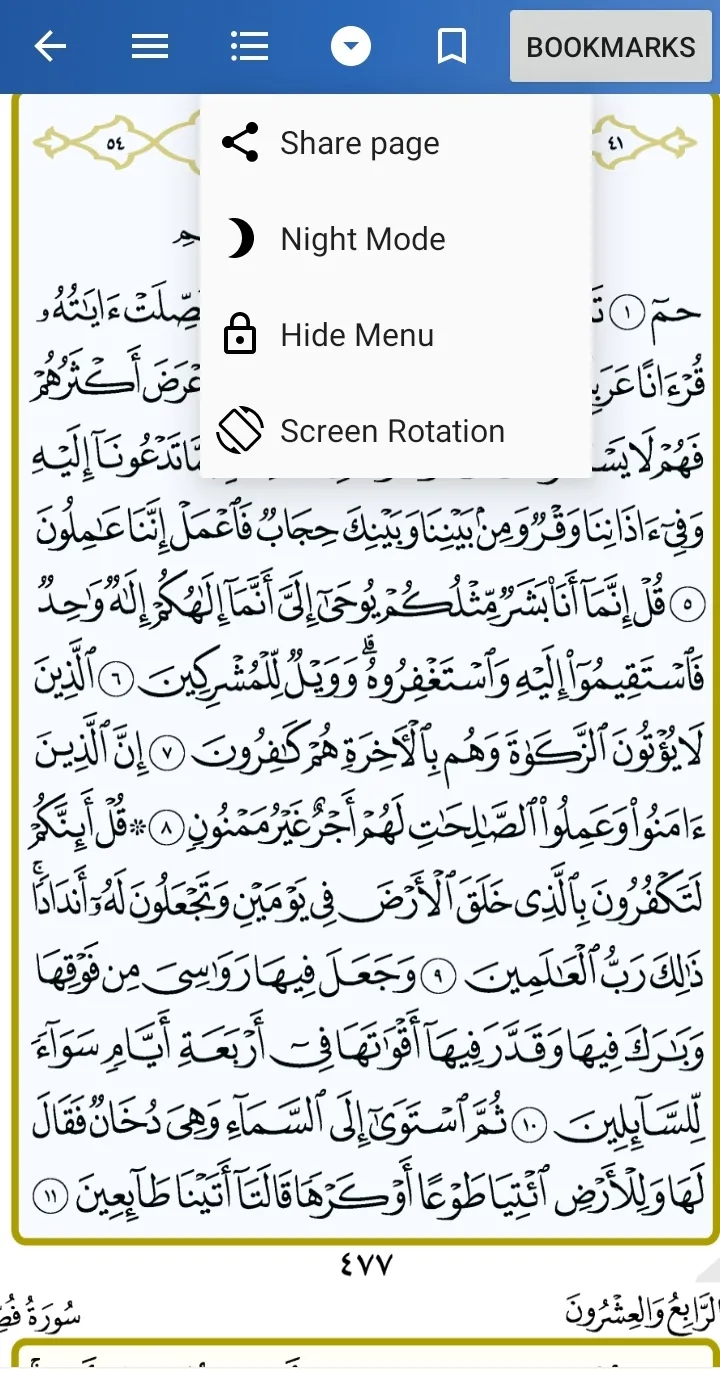 BOOKMARKS
Share page
Night Mode
Hide Menu
Screen Rotation
٥٤
٤١
حمٓ ١
ءَايَٰتُهُۥ
أَكۡثَرُهُمۡ
فَهُمۡ لَا
تَدۡعُونَآ إِلَيۡهِ
وَفِيٓ ءَاذَانِنَا وَقۡرٞ وَمِنۢ بَيۡنِنَا وَبَيۡنِكَ حِجَابٞ فَٱعۡمَلۡ إِنَّنَا عَٰمِلُونَ
٥ قُلۡ إِنَّمَآ أَنَا۠ بَشَرٞ مِّثۡلُكُمۡ يُوحَىٰٓ إِلَيَّ أَنَّمَآ إِلَٰهُكُمۡ إِلَٰهٞ وَٰحِدٞ
فَٱسۡتَقِيمُوٓاْ إِلَيۡهِ وَٱسۡتَغۡفِرُوهُۗ وَوَيۡلٞ لِّلۡمُشۡرِكِينَ ٦ ٱلَّذِينَ
لَا يُؤۡتُونَ ٱلزَّكَوٰةَ وَهُم بِٱلۡأٓخِرَةِ هُمۡ كَٰفِرُونَ ٧ إِنَّ ٱلَّذِينَ
ءَامَنُواْ وَعَمِلُواْ ٱلصَّٰلِحَٰتِ لَهُمۡ أَجۡرٌ غَيۡرُ مَمۡنُونٖ ٨ ۞ قُلۡ أَئِنَّكُمۡ
لَتَكۡفُرُونَ بِٱلَّذِي خَلَقَ ٱلۡأَرۡضَ فِي يَوۡمَيۡنِ وَتَجۡعَلُونَ لَهُۥٓ أَندَادٗاۚ
ذَٰلِكَ رَبُّ ٱلۡعَٰلَمِينَ ٩ وَجَعَلَ فِيهَا رَوَٰسِيَ مِن فَوۡقِهَا
وَبَٰرَكَ فِيهَا وَقَدَّرَ فِيهَآ أَقۡوَٰتَهَا فِيٓ أَرۡبَعَةِ أَيَّامٖ سَوَآءٗ
لِّلسَّآئِلِينَ ١٠ ثُمَّ ٱسۡتَوَىٰٓ إِلَى ٱلسَّمَآءِ وَهِيَ دُخَانٞ فَقَالَ
لَهَا وَلِلۡأَرۡضِ ٱئۡتِيَا طَوۡعًا أَوۡ كَرۡهٗا قَالَتَآ أَتَيۡنَا طَآئِعِينَ ١١
٤٧٧
ٱلرَّابِعُ وَالعِشۡرُونَ
سُورَةُ